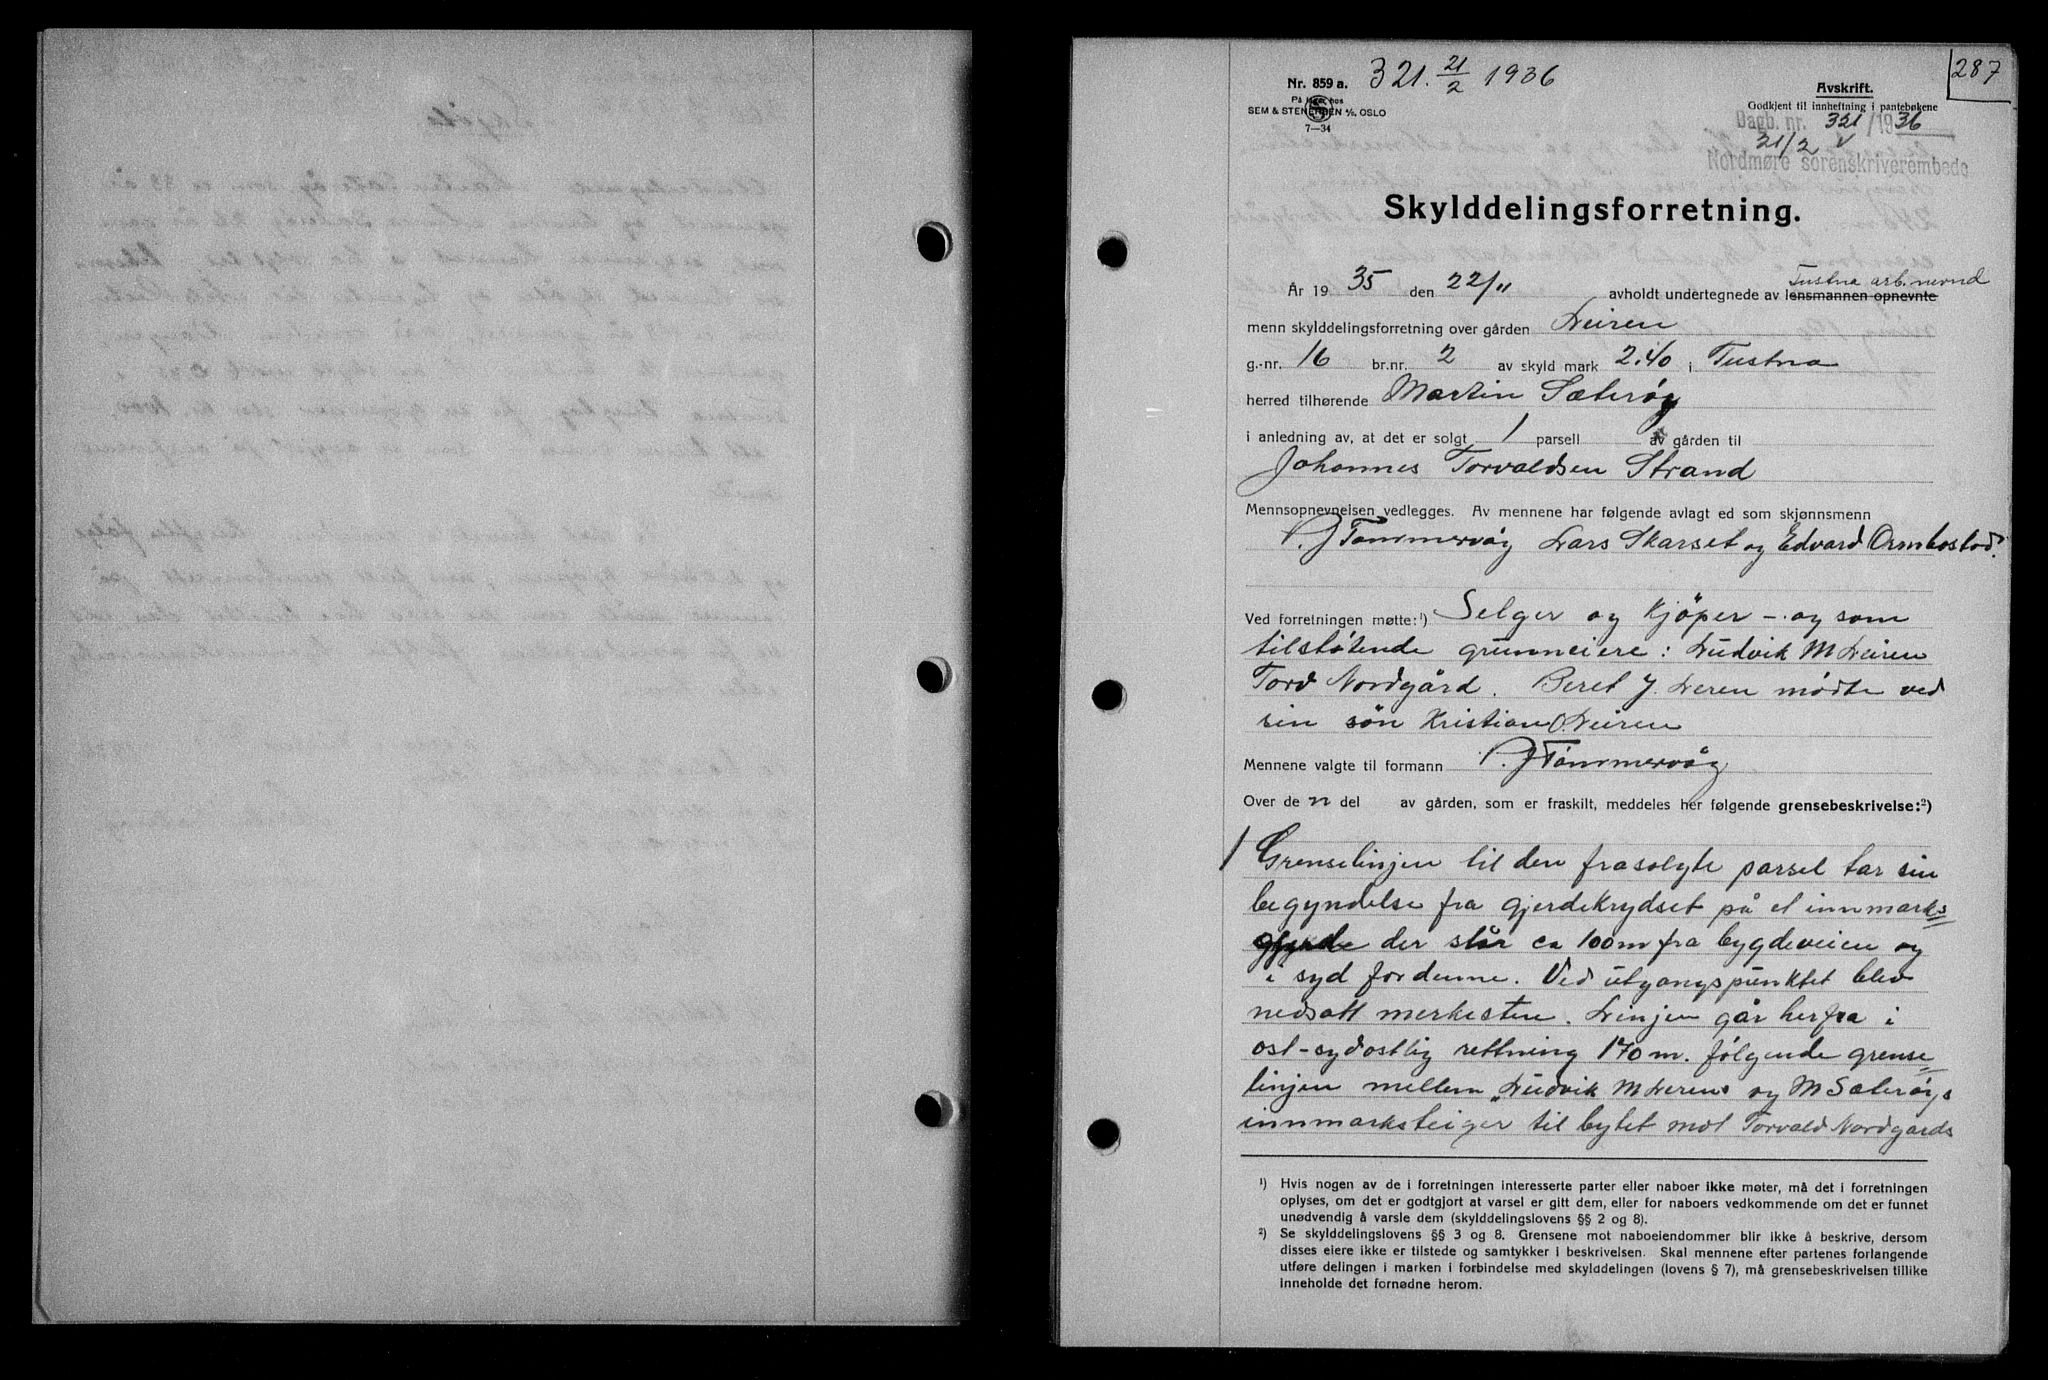 287
Nr. 859 a.
321. 21/2 1936
På lager hos
SEM & STENERSEN A/S. OSLO
7—34
Avskrift.
Godkjent til innheftning i pantebøkene
Dagb. nr. 321/1936
21/2
Nordmøre sorenskriverembede
Skylddelingsforretning.
År 1935 den 22/11 avholdt undertegnede av lensmannen opnevnte Tustna arb.nevnd
menn skylddelingsforretning over gården Leiren
g.-nr. 16 br.nr. 2 av skyld mark 2.40 i Tustna
herred tilhørende Martin Sæterøy
i anledning av, at det er solgt 1 parsell av gården til
Johannes Torvaldsen Strand
Mennsopnevnelsen vedlegges. Av mennene har følgende avlagt ed som skjønnsmenn
P. J Tømmervåg Lars Skarset og Edvard Ormbostad.
Ved forretningen møtte:¹) Selger og Kjöper - og som
tilstøtende grunneiere: Ludvik M Leiren
Tord Nordgård. Beret J. Leren mødte ved
sin søn Kristian Leiren
Mennene valgte til formann P. J Tømmervåg
Over den del av gården, som er fraskilt, meddeles her følgende grensebeskrivelse:²)
1 Grenselinjen til den frasolgte parsel tar sin
begyndelse fra gjerdekrydset på et innmarks=
gjerde der står ca 100 m fra bygdeveien og
i syd for denne. Ved utgangspunktet blev
nedsatt merkesten. Linjen går herfra i
ost-sydostlig rettning 170 m. følgende grense=
linjen mellem Ludvik M Lerens og M Sæterøys
innmarksteiger til bytet mot Torvald Nordgards
¹) Hvis nogen av de i forretningen interesserte parter eller naboer ikke møter, må det i forretningen
oplyses, om det er godtgjort at varsel er gitt dem, eller for naboers vedkommende om det er funnet
unødvendig å varsle dem (skylddelingslovens §§ 2 og 8).
²) Se skylddelingslovens §§ 3 og 8. Grensene mot naboeiendommer blir ikke å beskrive, dersom
disses eiere ikke er tilstede og samtykker i beskrivelsen. Skal mennene efter partenes forlangende
utføre delingen i marken i forbindelse med skylddelingen (lovens § 7), må grensebeskrivelsen tillike
inneholde det fornødne herom.